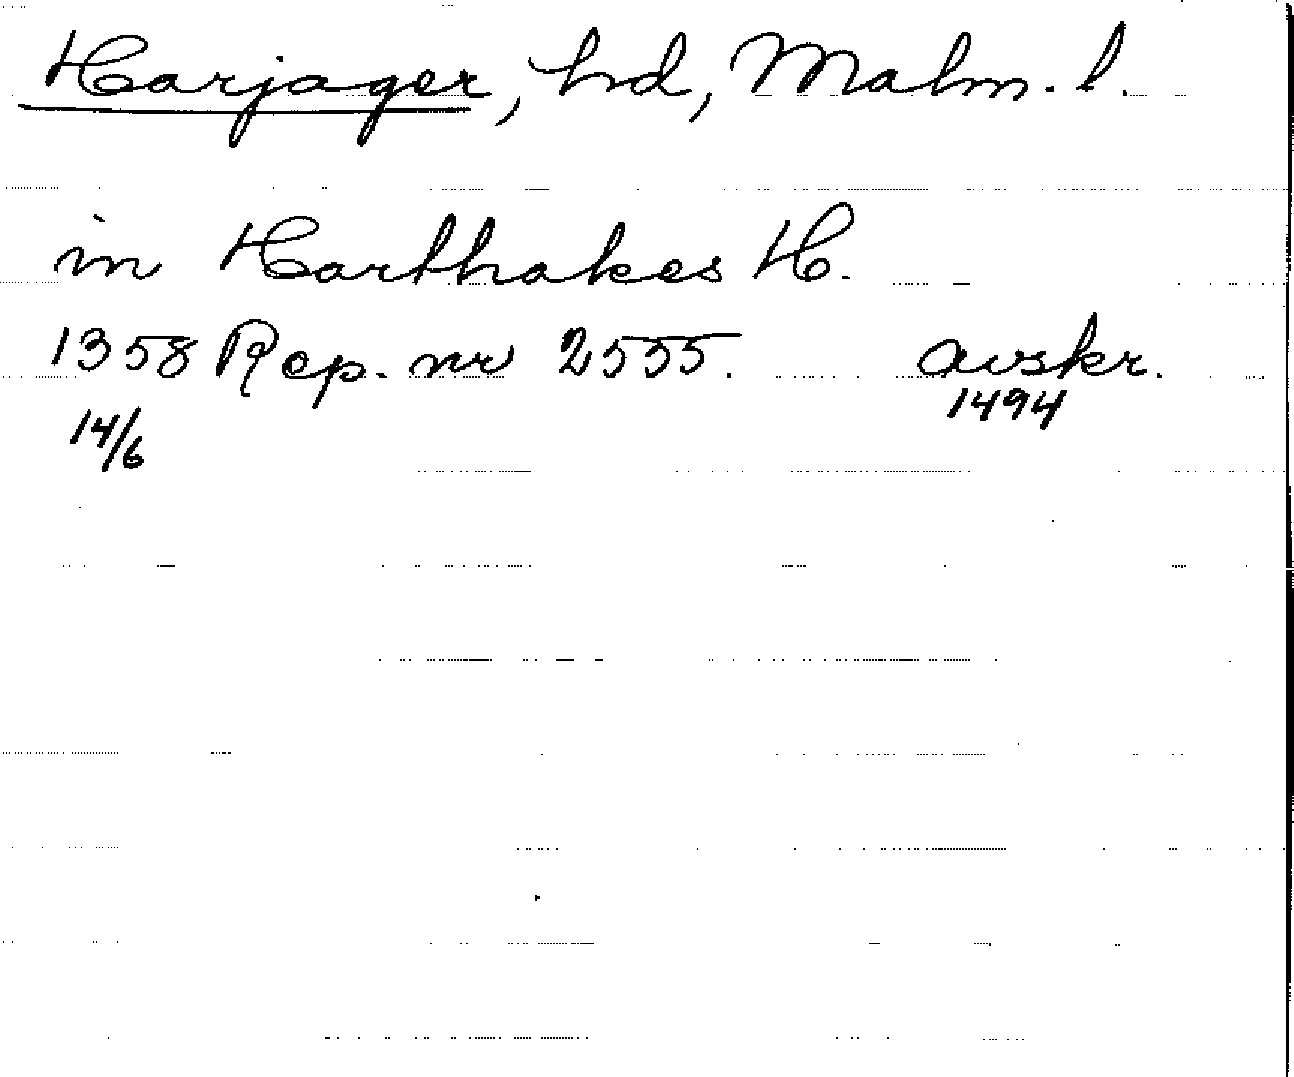 Harjager, hd, Malm. l.
in Harthakes H.
1358 Rep. nr 2555. avskr.
14/6 1494